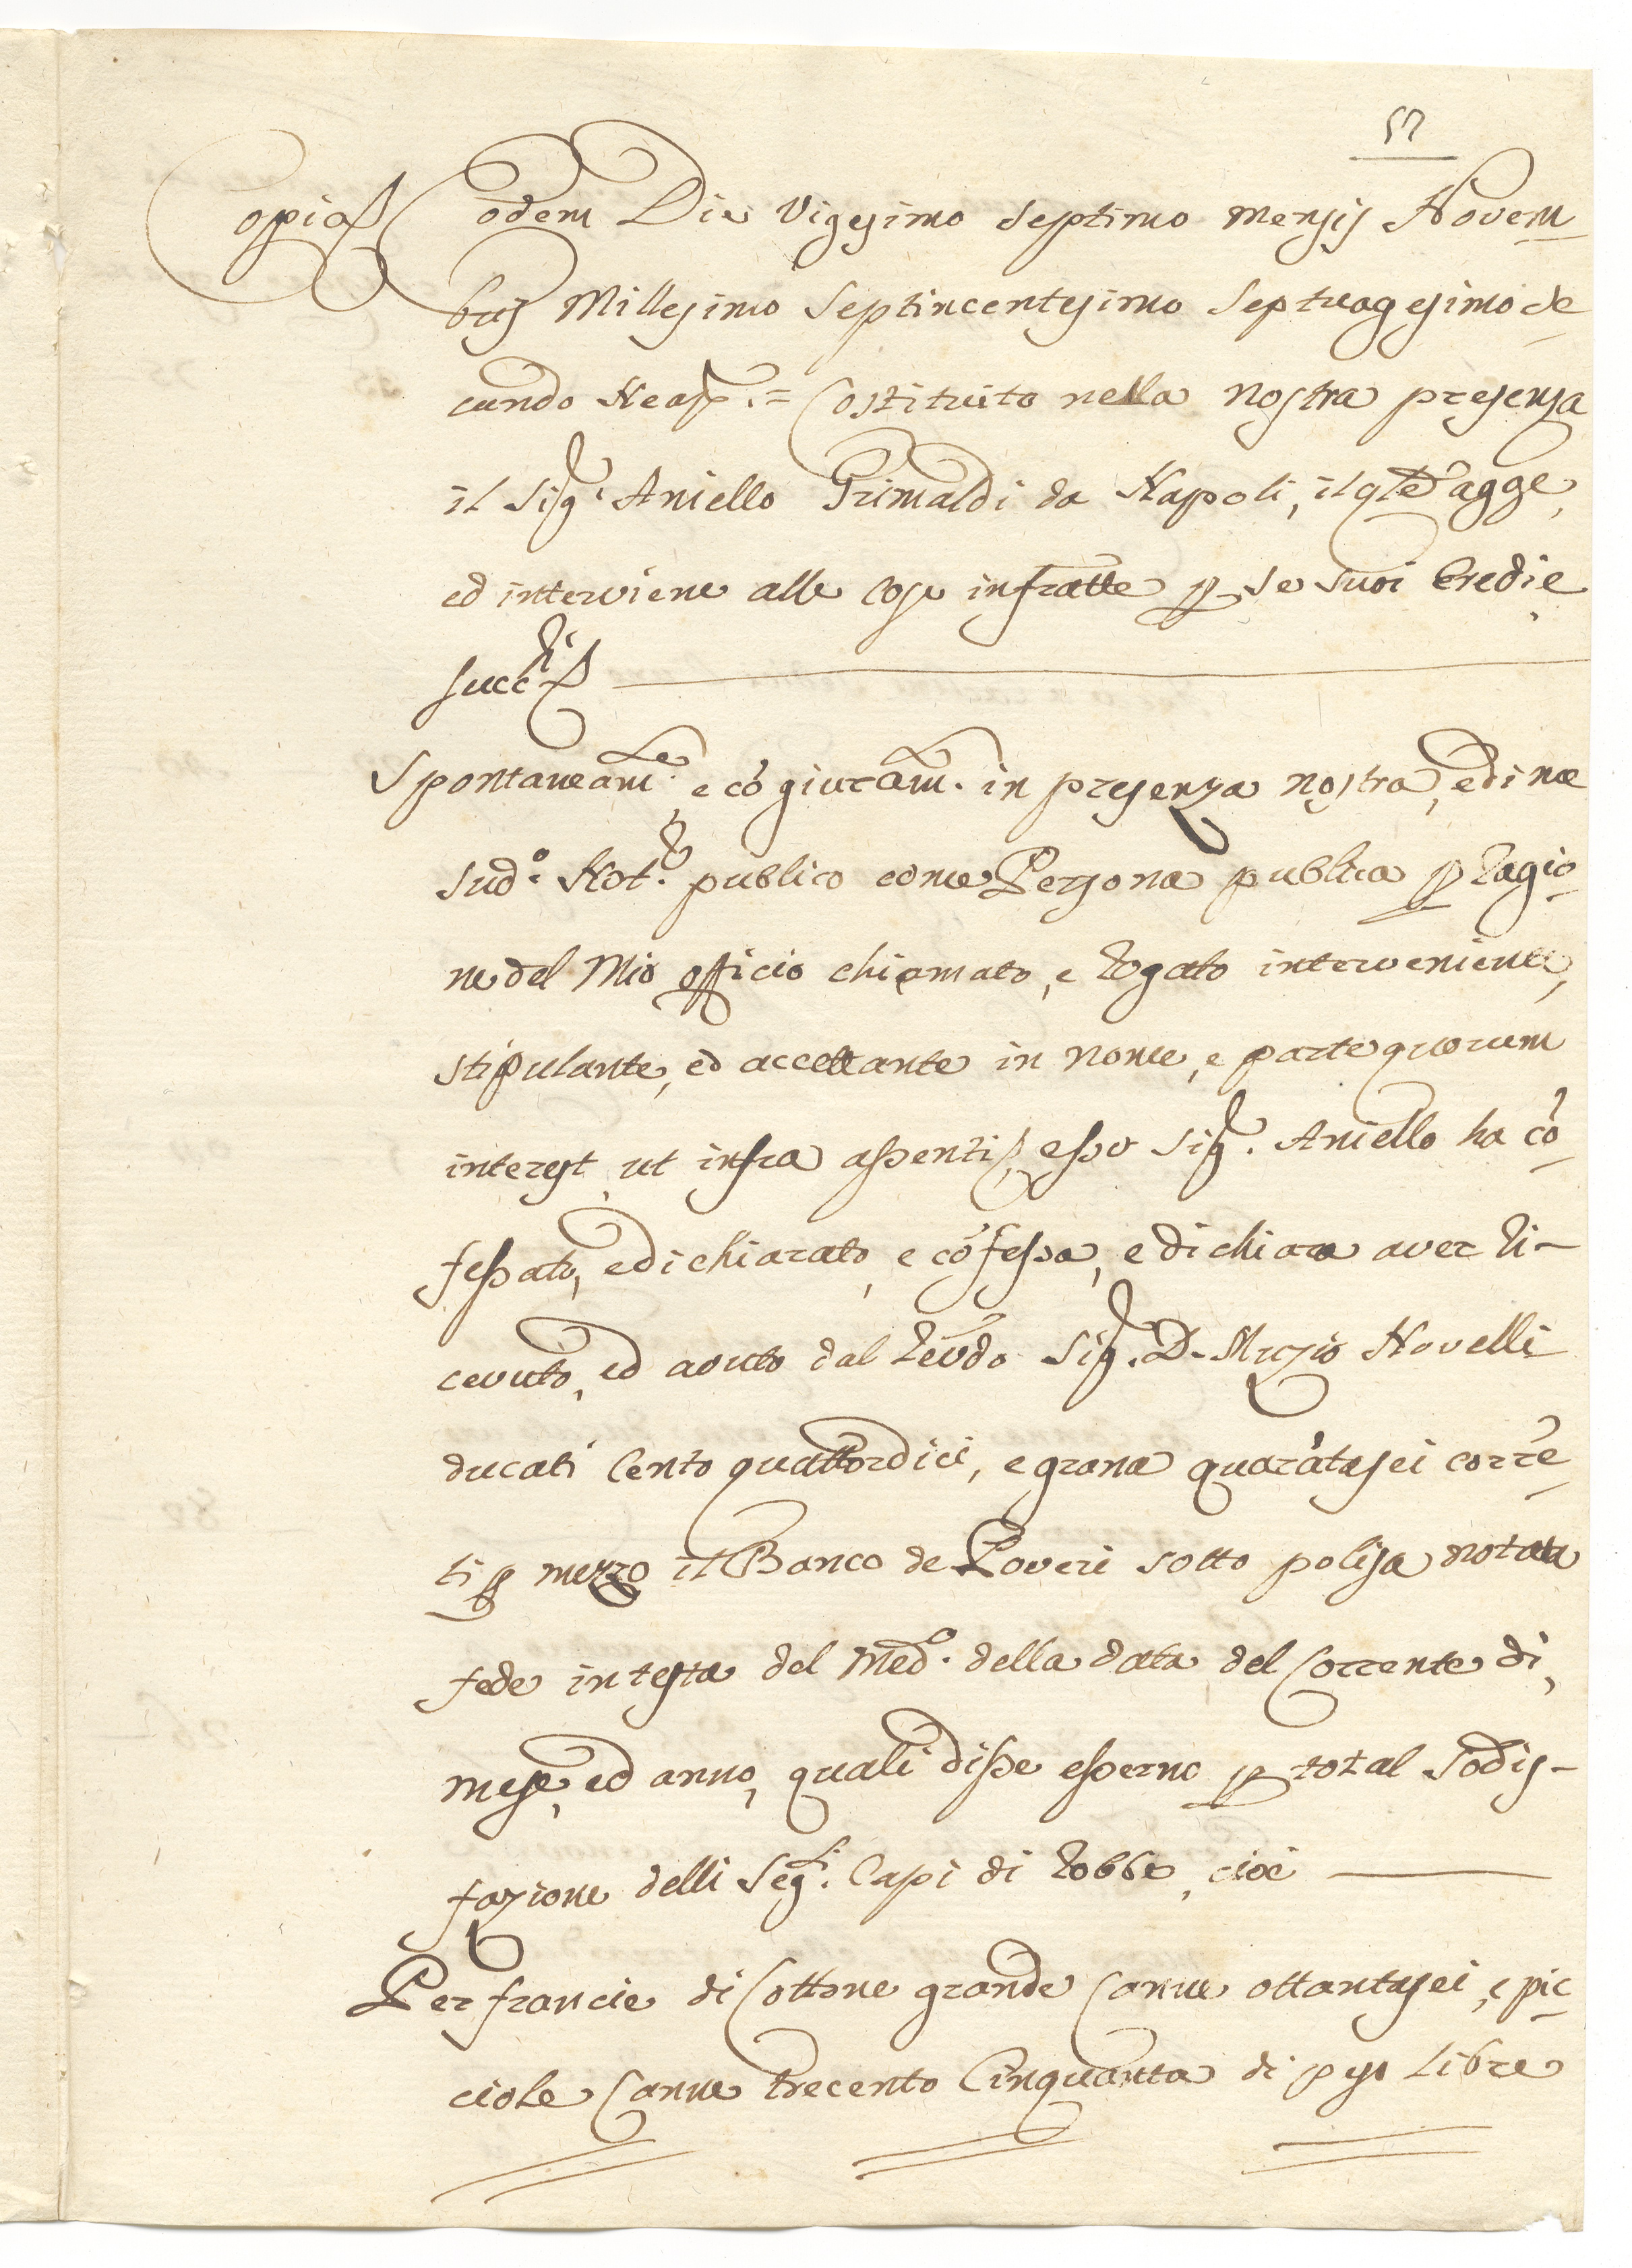 57
Copia Eodem Die Vigesimo Septimo mensis Novem
bris Millesimo Septincentesimo Septuagesimo Se
cundo Neap. = Costituito nella nostra presenza
il Sig.r Aniello Grimaldi da Napoli, il qle agge,
ed interviene alle cose infratte p se suoi Eredi e
Succ.ri
Spontaneam.te e có giuram.to in presenza nostra, e di me
Sud.o Not.r publico come Persona publica p ragio
ne del mio officio chiamato, e rogato interveniente,
stipulante, ed accettante in nome, e parte quorum
interest, ut infra assenti, esso Sig.r Aniello ha có
fessato, e dichiarato, e cófessa, e dichiara aver ri-
cevuto, ed avuto dal Revdo Sig.r D. Muzio Novelli
ducati Cento quattordici, e grana quarátasei corré
ti p mezzo il Banco de Poveri sotto polisa notata
fede in testa del Med.o della data del Corrente dì,
mese, ed anno, quali disse esserno p total Sodis-
fazione delli Seg.ti Capi di robbe, cioè
Per francie di Cottone grande Canne ottantasei, e pic
ciole Canne trecento Cinquanta di peso libre